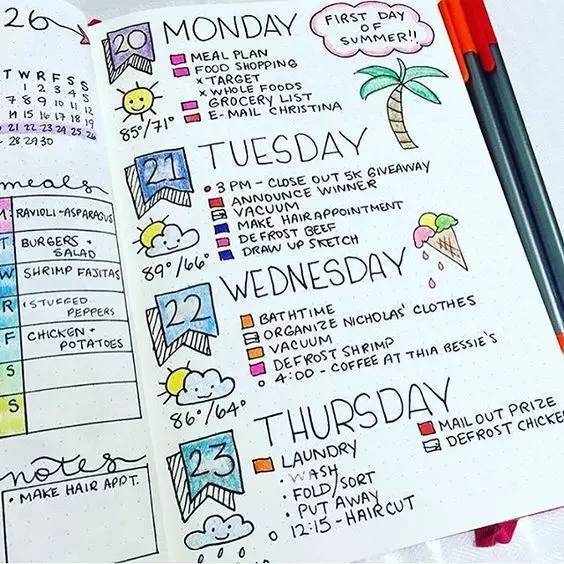 26
T W R F S S
1 2 3 4 5
7 8 9 10 11 12
14 15 16 17 18 19
21 22 23 24 25 26
28 29 30
meals
M: RAVIOLI-ASPARAGUS
T BURGERS + SALAD
W SHRIMP FAJITAS
R STUFFED PEPPERS
F CHICKEN + POTATOES
S
S
notes
• MAKE HAIR APPT.
20 MONDAY
FIRST DAY
OF
SUMMER!!
MEAL PLAN
FOOD SHOPPING
x TARGET
x WHOLE FOODS
GROCERY LIST
E-MAIL CHRISTINA
85°/71°
21 TUESDAY
3 PM - CLOSE OUT 5K GIVEAWAY
ANNOUNCE WINNER
VACUUM
MAKE HAIR APPOINTMENT
DEFROST BEEF
DRAW UP SKETCH
89°/66°
22 WEDNESDAY
BATHTIME
ORGANIZE NICHOLAS' CLOTHES
VACUUM
DEFROST SHRIMP
4:00 - COFFEE AT THIA BESSIE'S
86°/64°
23 THURSDAY
LAUNDRY
• WASH
• FOLD/SORT
• PUT AWAY
12:15 - HAIRCUT
MAIL OUT PRIZE
DEFROST CHICKE